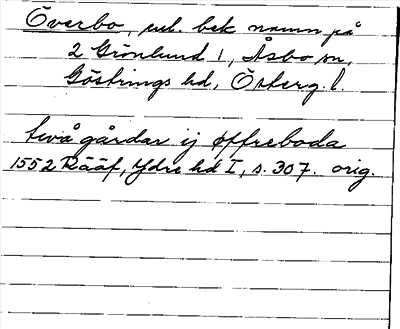 Överbo, enl. bek namn på
2 Grönlund 1, Åsbo sn,
Göstrings hd, Österg. l.
två gårdar ij øffreboda
1552 Rääf, Ydre hd I, s. 307. orig.